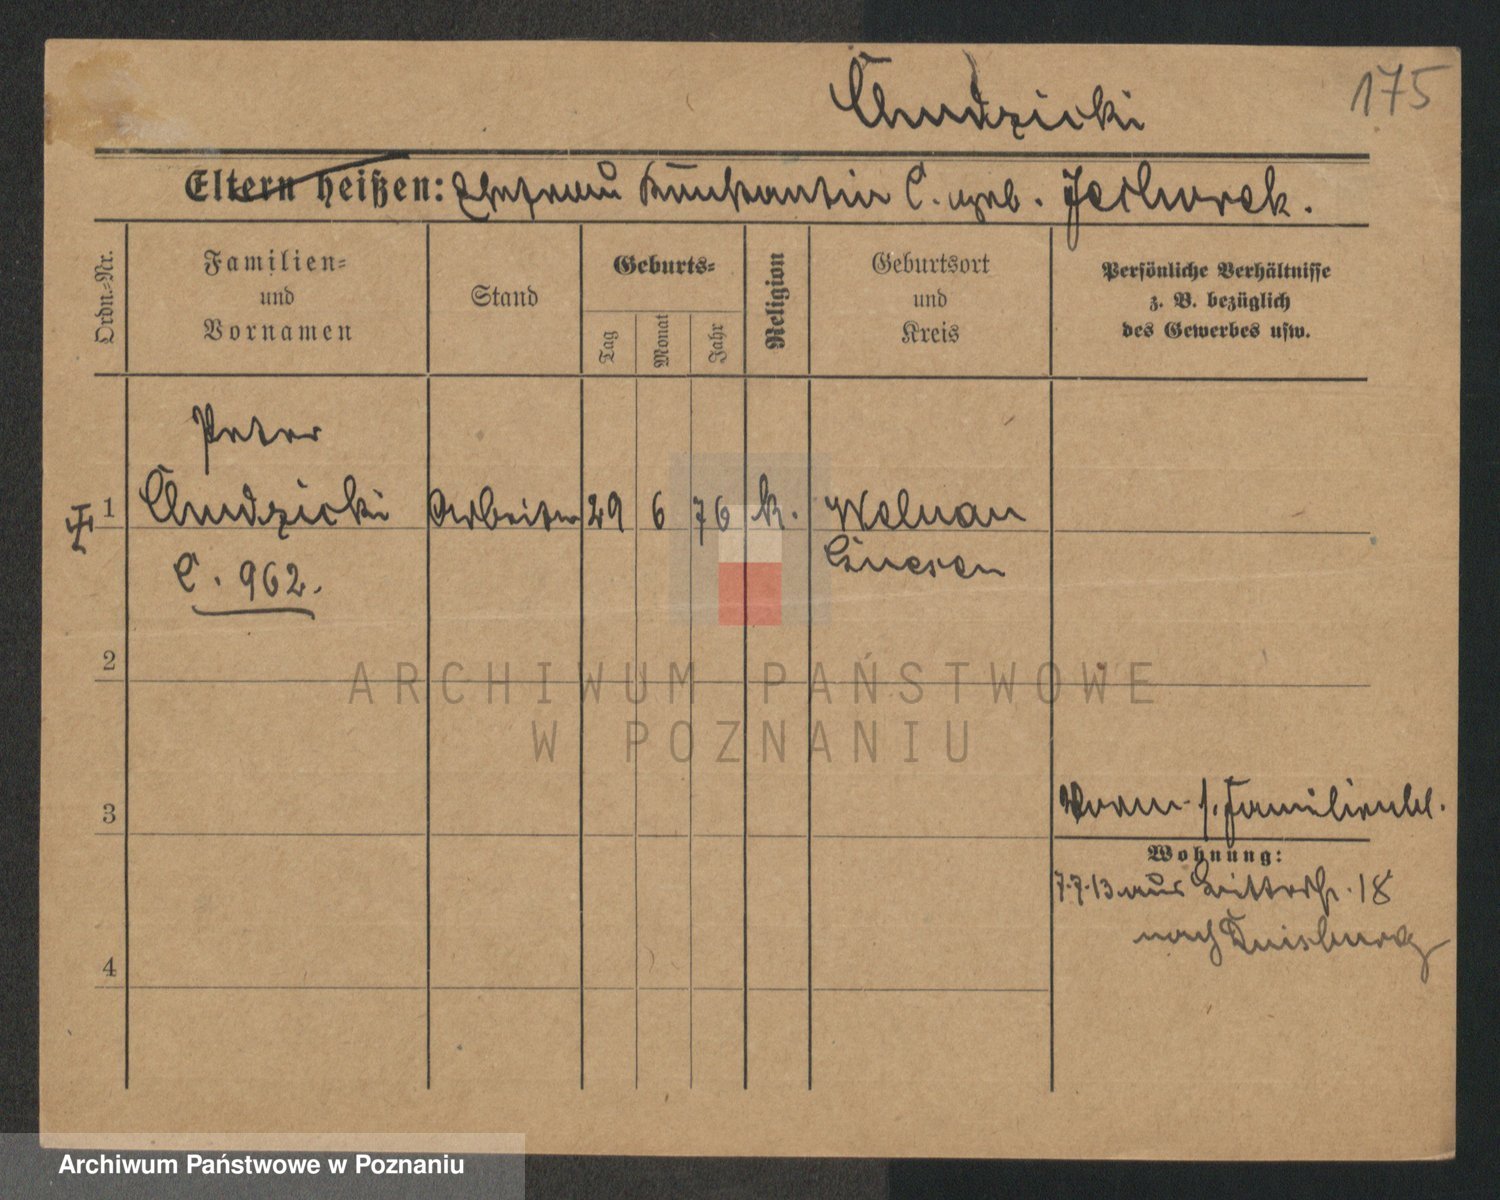 Chudzicki
175
Eltern heißen: Ehefrau Konstantin C. geb.
Ordn.-Nr.
Familien- und Vornamen
Stand
Geburts-
Tag
Monat
Jahr
Religion
Geburtsort und Kreis
Persönliche Verhältnisse
z. B. bezüglich
des Gewerbes usw.
Peter
1 Chudzicki Arbeiter 29 6 76 k. Welnau
C. 962. Gnesen
2
ARCHIWUM PAŃSTWOWE
W POZNANIU
3
s. Familienbl.
Wohnung:
7.7.13 aus Ritterstr. 18
nach Duisburg
4
Archiwum Państwowe w Poznaniu